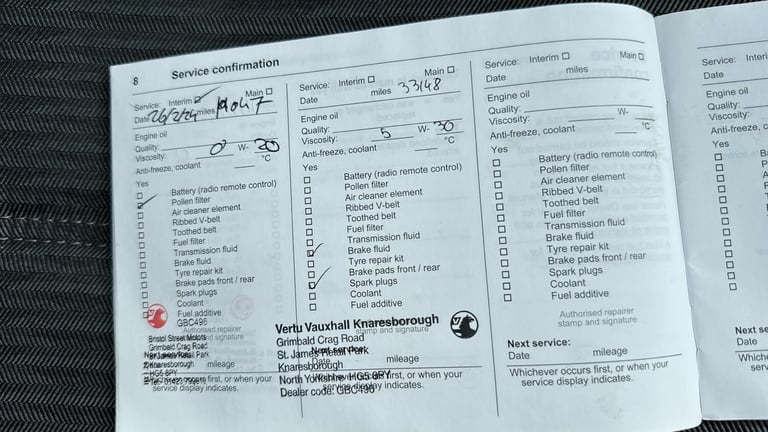 8 Service confirmation
Service: Interim Main
Date 26/2/24 miles
Engine oil
Quality:
Viscosity: 0 W- 20
Anti-freeze, coolant °C
Yes
Battery (radio remote control)
Pollen filter
Air cleaner element
Ribbed V-belt
Toothed belt
Fuel filter
Transmission fluid
Brake fluid
Tyre repair kit
Brake pads front / rear
Spark plugs
Coolant
Fuel additive
GBC496
Authorised repairer
stamp and signature
Bristol Street Motors
Grimbald Crag Road
St James Retail Park
mileage
Knaresborough
HG5 8PY
Whichever occurs first, or when your
service display indicates.
Service: Interim Main
Date miles 33148
Engine oil
Quality:
Viscosity: 5 W- 30
Anti-freeze, coolant °C
Yes
Battery (radio remote control)
Pollen filter
Air cleaner element
Ribbed V-belt
Toothed belt
Fuel filter
Transmission fluid
Brake fluid
Tyre repair kit
Brake pads front / rear
Spark plugs
Coolant
Fuel additive
Vertu Vauxhall Knaresborough
stamp and signature
Grimbald Crag Road
St. James Retail Park
Next service:
Date mileage
Knaresborough
North Yorkshire HG5 8PY
Whichever occurs first, or when your
service display indicates.
Dealer code: GBC496
Service: Interim Main
Date miles
Engine oil
Quality:
Viscosity: W-
Anti-freeze, coolant °C
Yes
Battery (radio remote control)
Pollen filter
Air cleaner element
Ribbed V-belt
Toothed belt
Fuel filter
Transmission fluid
Brake fluid
Tyre repair kit
Brake pads front / rear
Spark plugs
Coolant
Fuel additive
Authorised repairer
stamp and signature
Next service:
Date mileage
Whichever occurs first, or when your
service display indicates.
Service: Interi
Date
Engine oil
Quality:
Viscosity:
Anti-freeze, c
Yes
Next se
Date
Which
serv